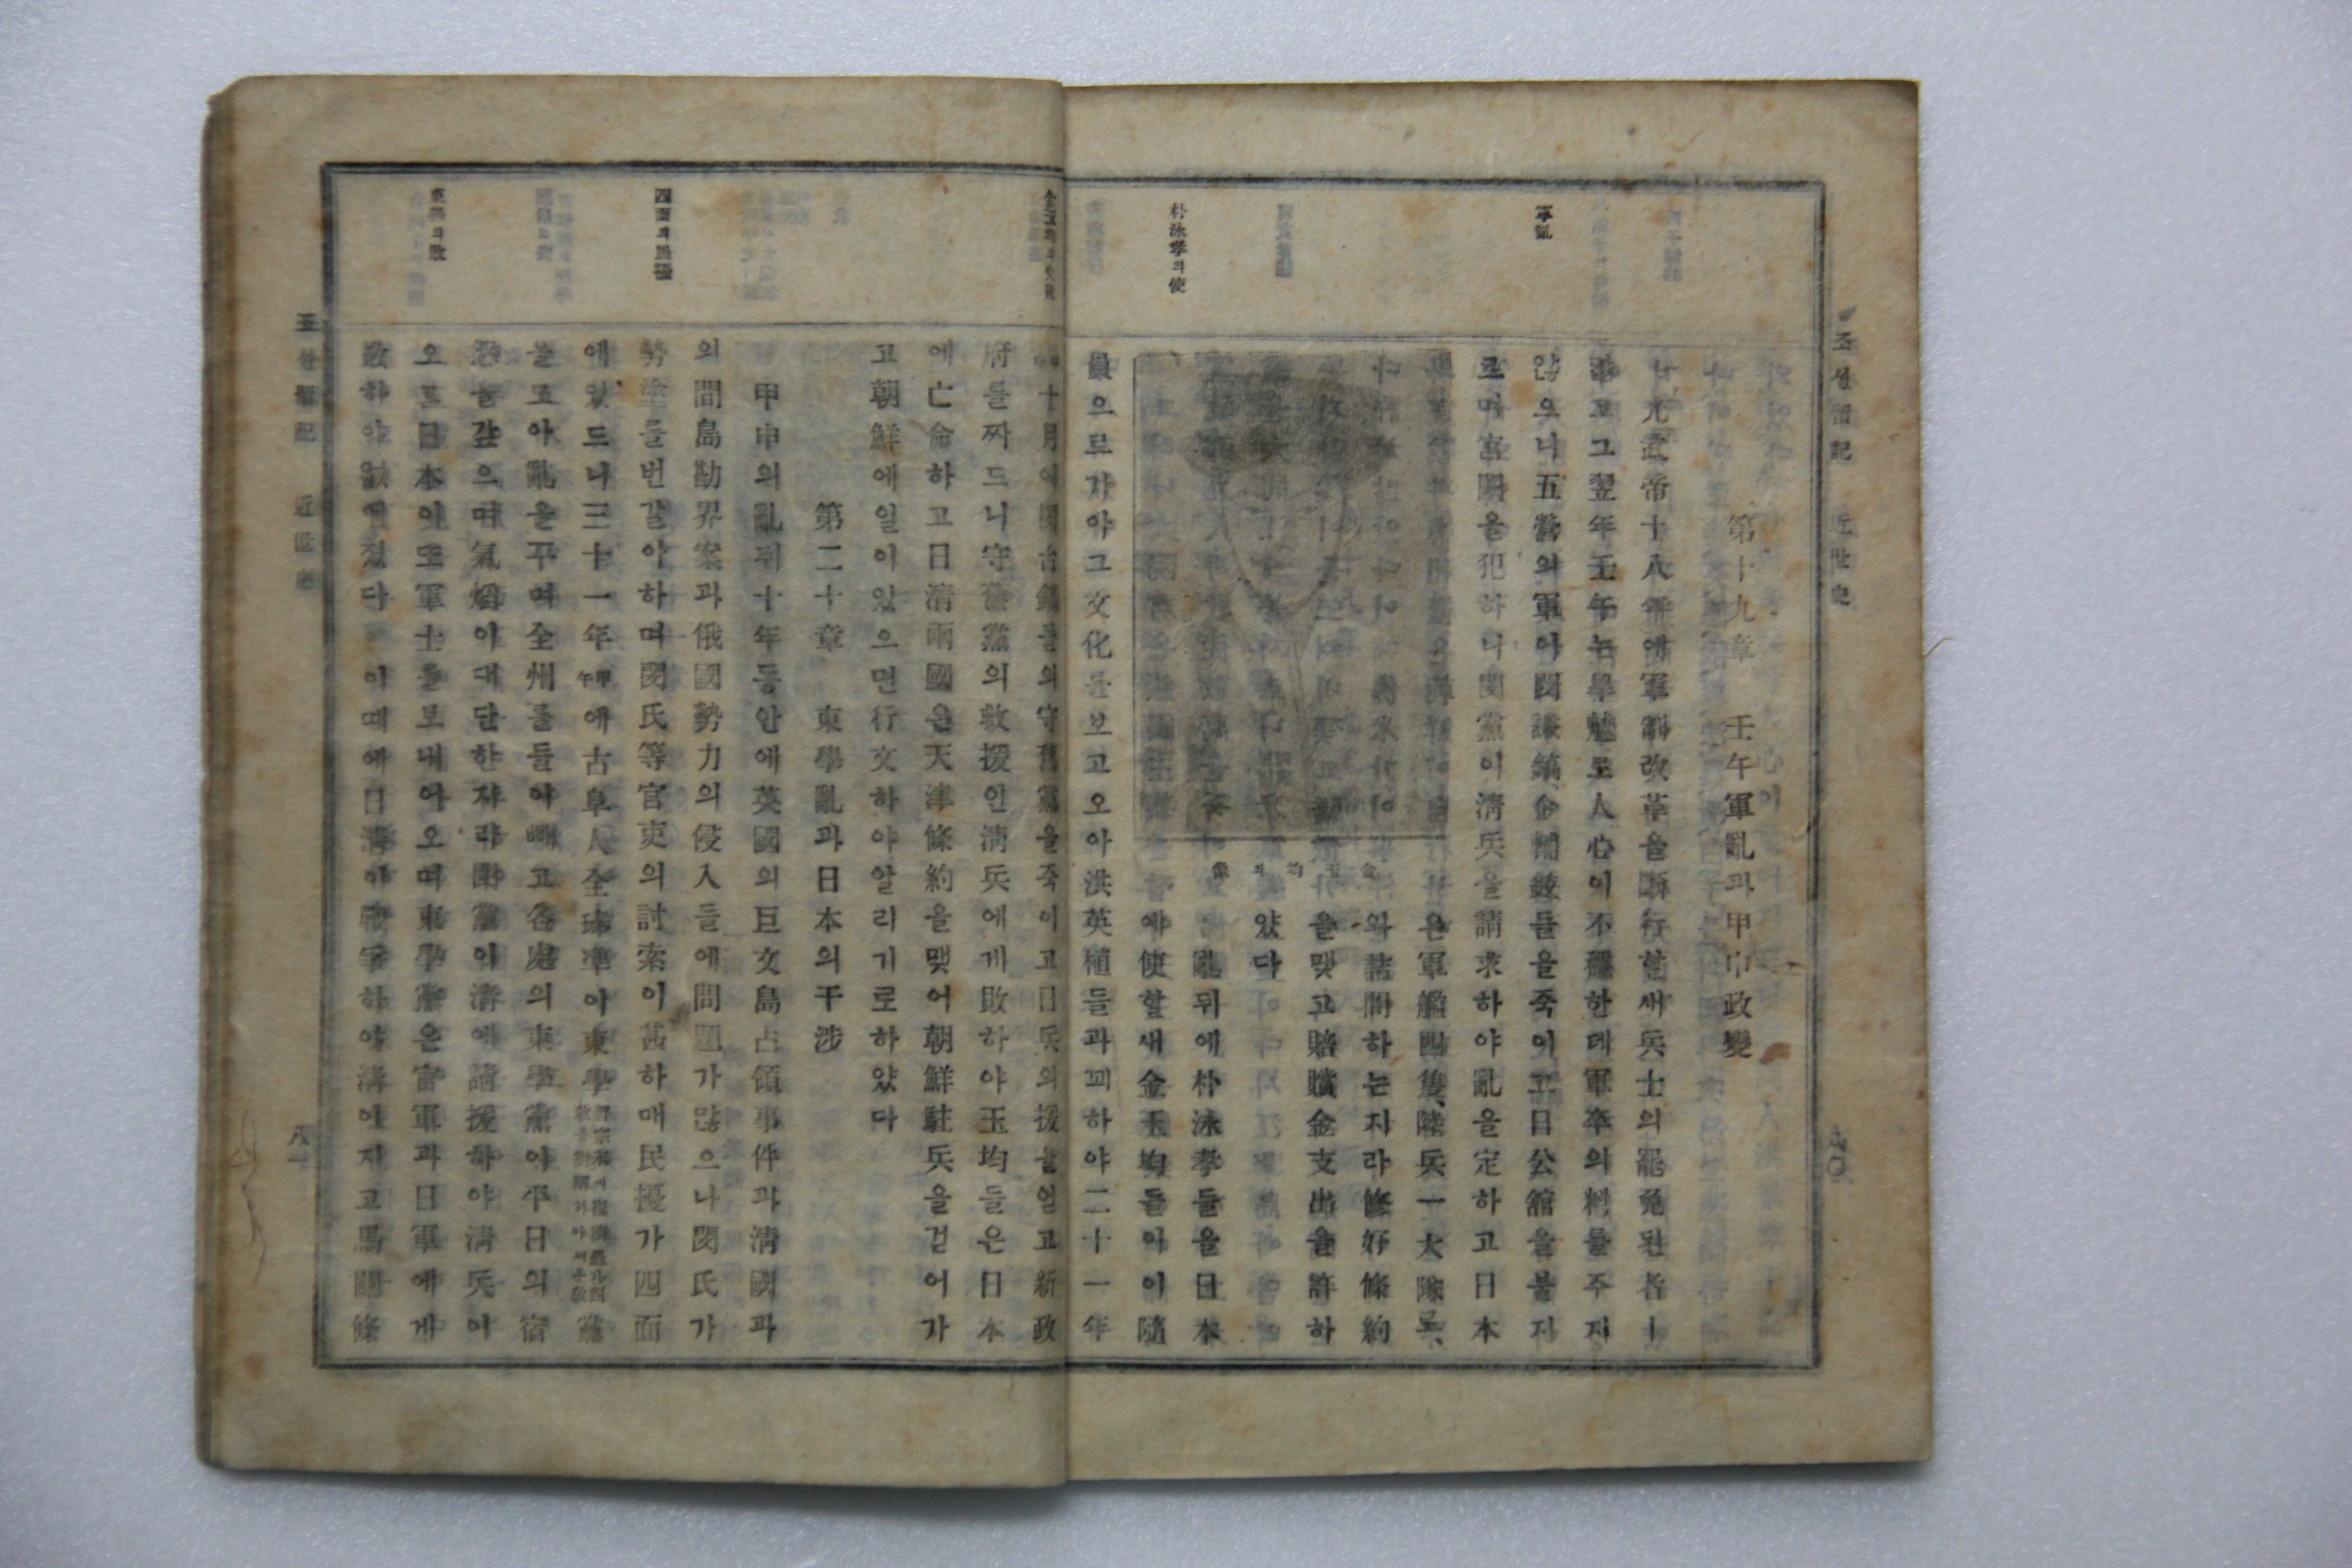 조선留記 近世史
八〇
第十九章 壬午軍亂과甲申政變
軍亂
朴泳孝의使
光武帝十八年에軍制改革을斷行할새兵士의罷免된者
많고그翌年壬午는旱魃로人心이不穩한데軍卒의料를주지
않으니五營의軍이閔謙鎬、金輔鉉들을죽이고日公館을불지
르며宮闕을犯하니閔黨이淸兵을請求하야亂을定하고日本
은軍艦四隻、陸兵一大隊로、
와詰問하는지라修好條約
을맺고賠償金支出을許하
았다
亂뒤에朴泳孝들을日本
에使할새金玉均들이이隨
員으로가아그文化를보고오아洪英植들과꾀하야二十一年
金玉均의像
金玉均의失敗
四面의民擾
東學의敗
十月에閔台鎬들의守舊黨을죽이고日兵의援을얻고新政
府를짜드니守舊黨의救援인淸兵에게敗하야玉均들은日本
에亡命하고日淸兩國은天津條約을맺어朝鮮駐兵을걷어가
고朝鮮에일이있으면行文하야알리기로하았다
第二十章 東學亂과日本의干涉
甲申의亂뒤十年동안에英國의巨文島占領事件과淸國과
의間島勘界案과俄國勢力의侵入들에問題가많으나閔氏가
勢塗들번갈아하며閔氏等官吏의討索이甚하매民擾가四面
에있드니三十一年甲午에古阜人全琫準이東學黨
을모아亂을꾸며全州를들이빼고各處의東學黨이平日의宿
怨을갚으며氣焰이대단한지라閔黨이淸에請援하야淸兵이
오고日本이또軍士를보내어오며東學黨은官軍과日軍에게
敗하야없에젔다 이때에日淸이戰爭하야淸이지고馬關條
조선留記 近世史
八一